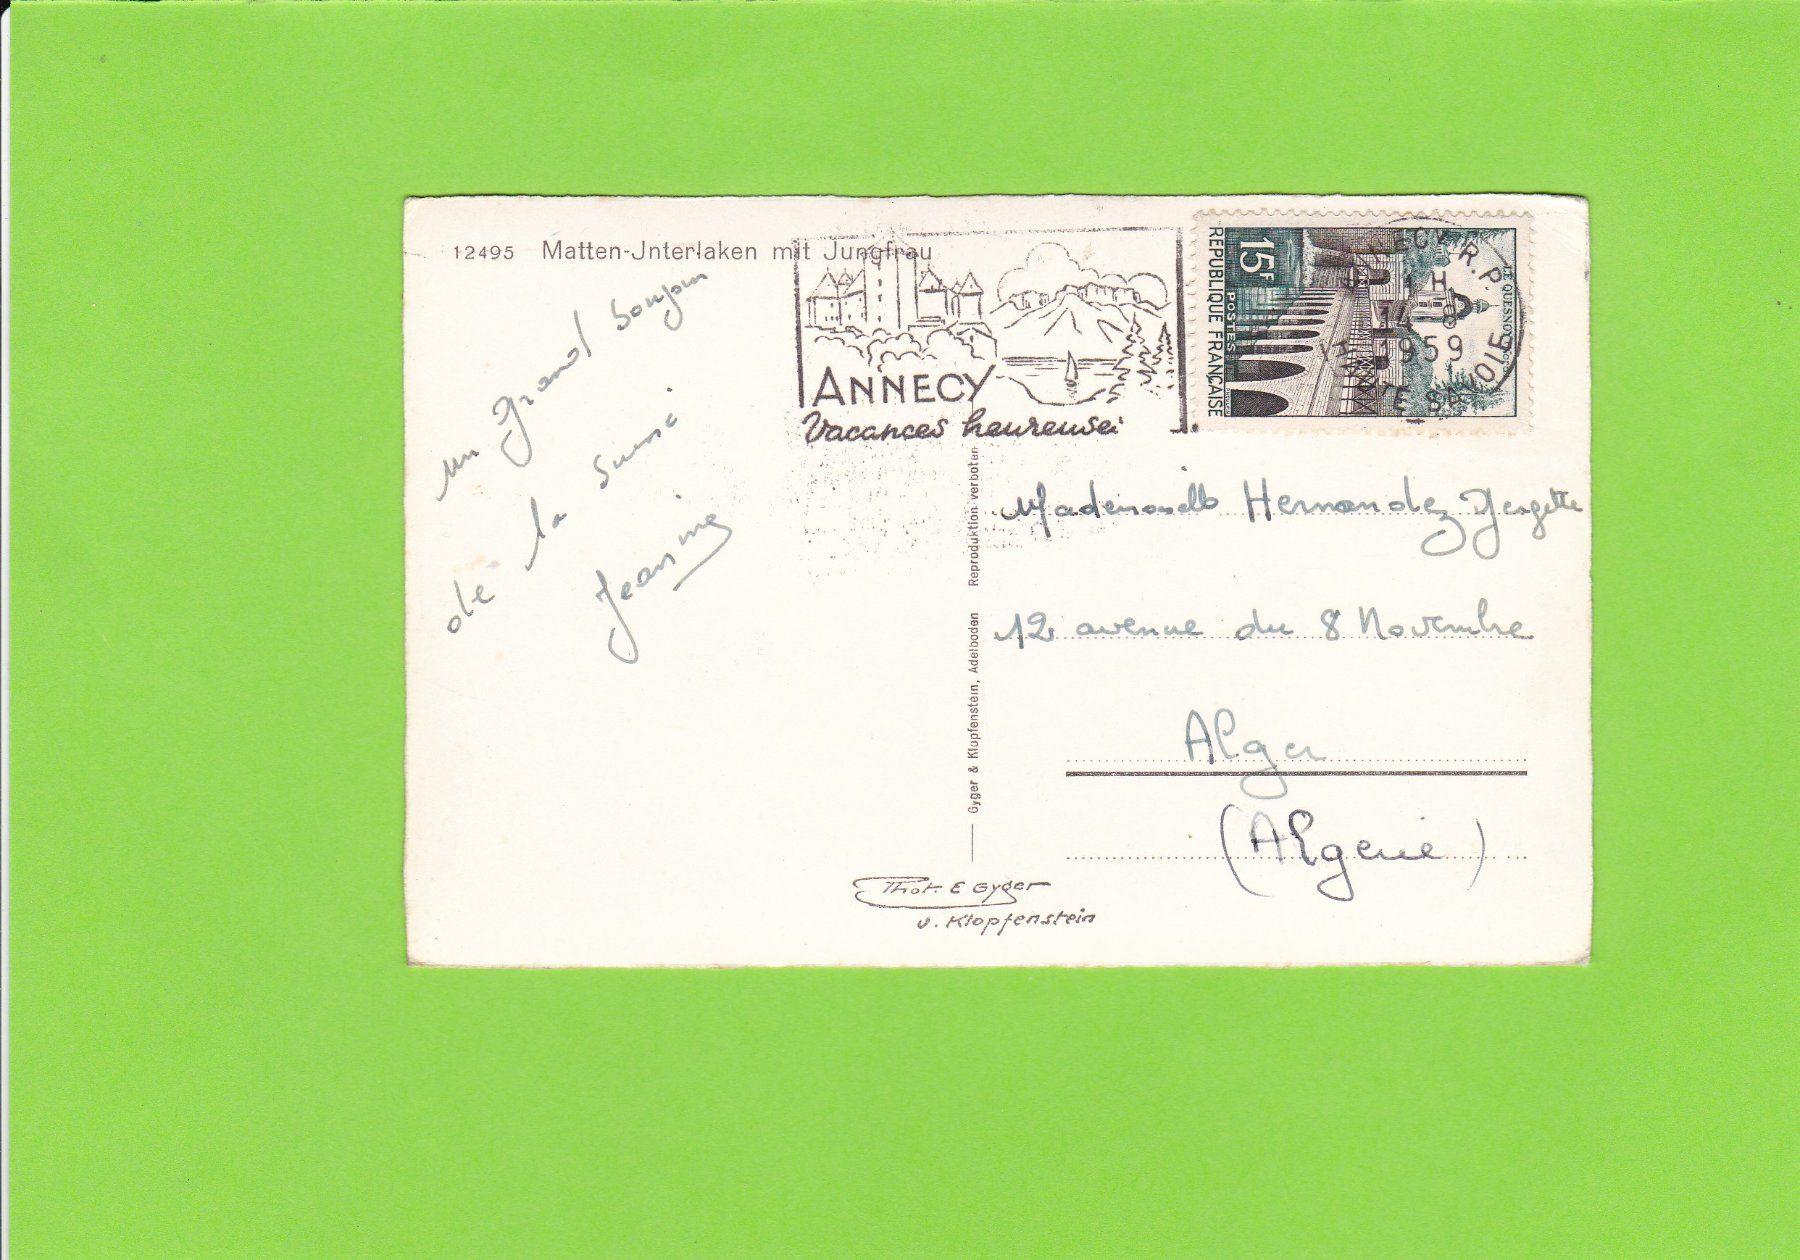 12495 Matten-Jnterlaken mit Jungfrau
un grand bonjour
de la suisse
Jeannine
ANNECY
Vacances heureuses
15F
POSTES
REPUBLIQUE FRANÇAISE
LE QUESNOY
ANNECY R.P.
H
14 8
1959
TE SAVOIE
Mademoiselle Hernandez
12 avenue du 8 Novembre
Alger
(Algerie)
Gyger & Klopfenstein, Adelboden Reproduktion verboten
Phot. E Gyger
u. Klopfenstein